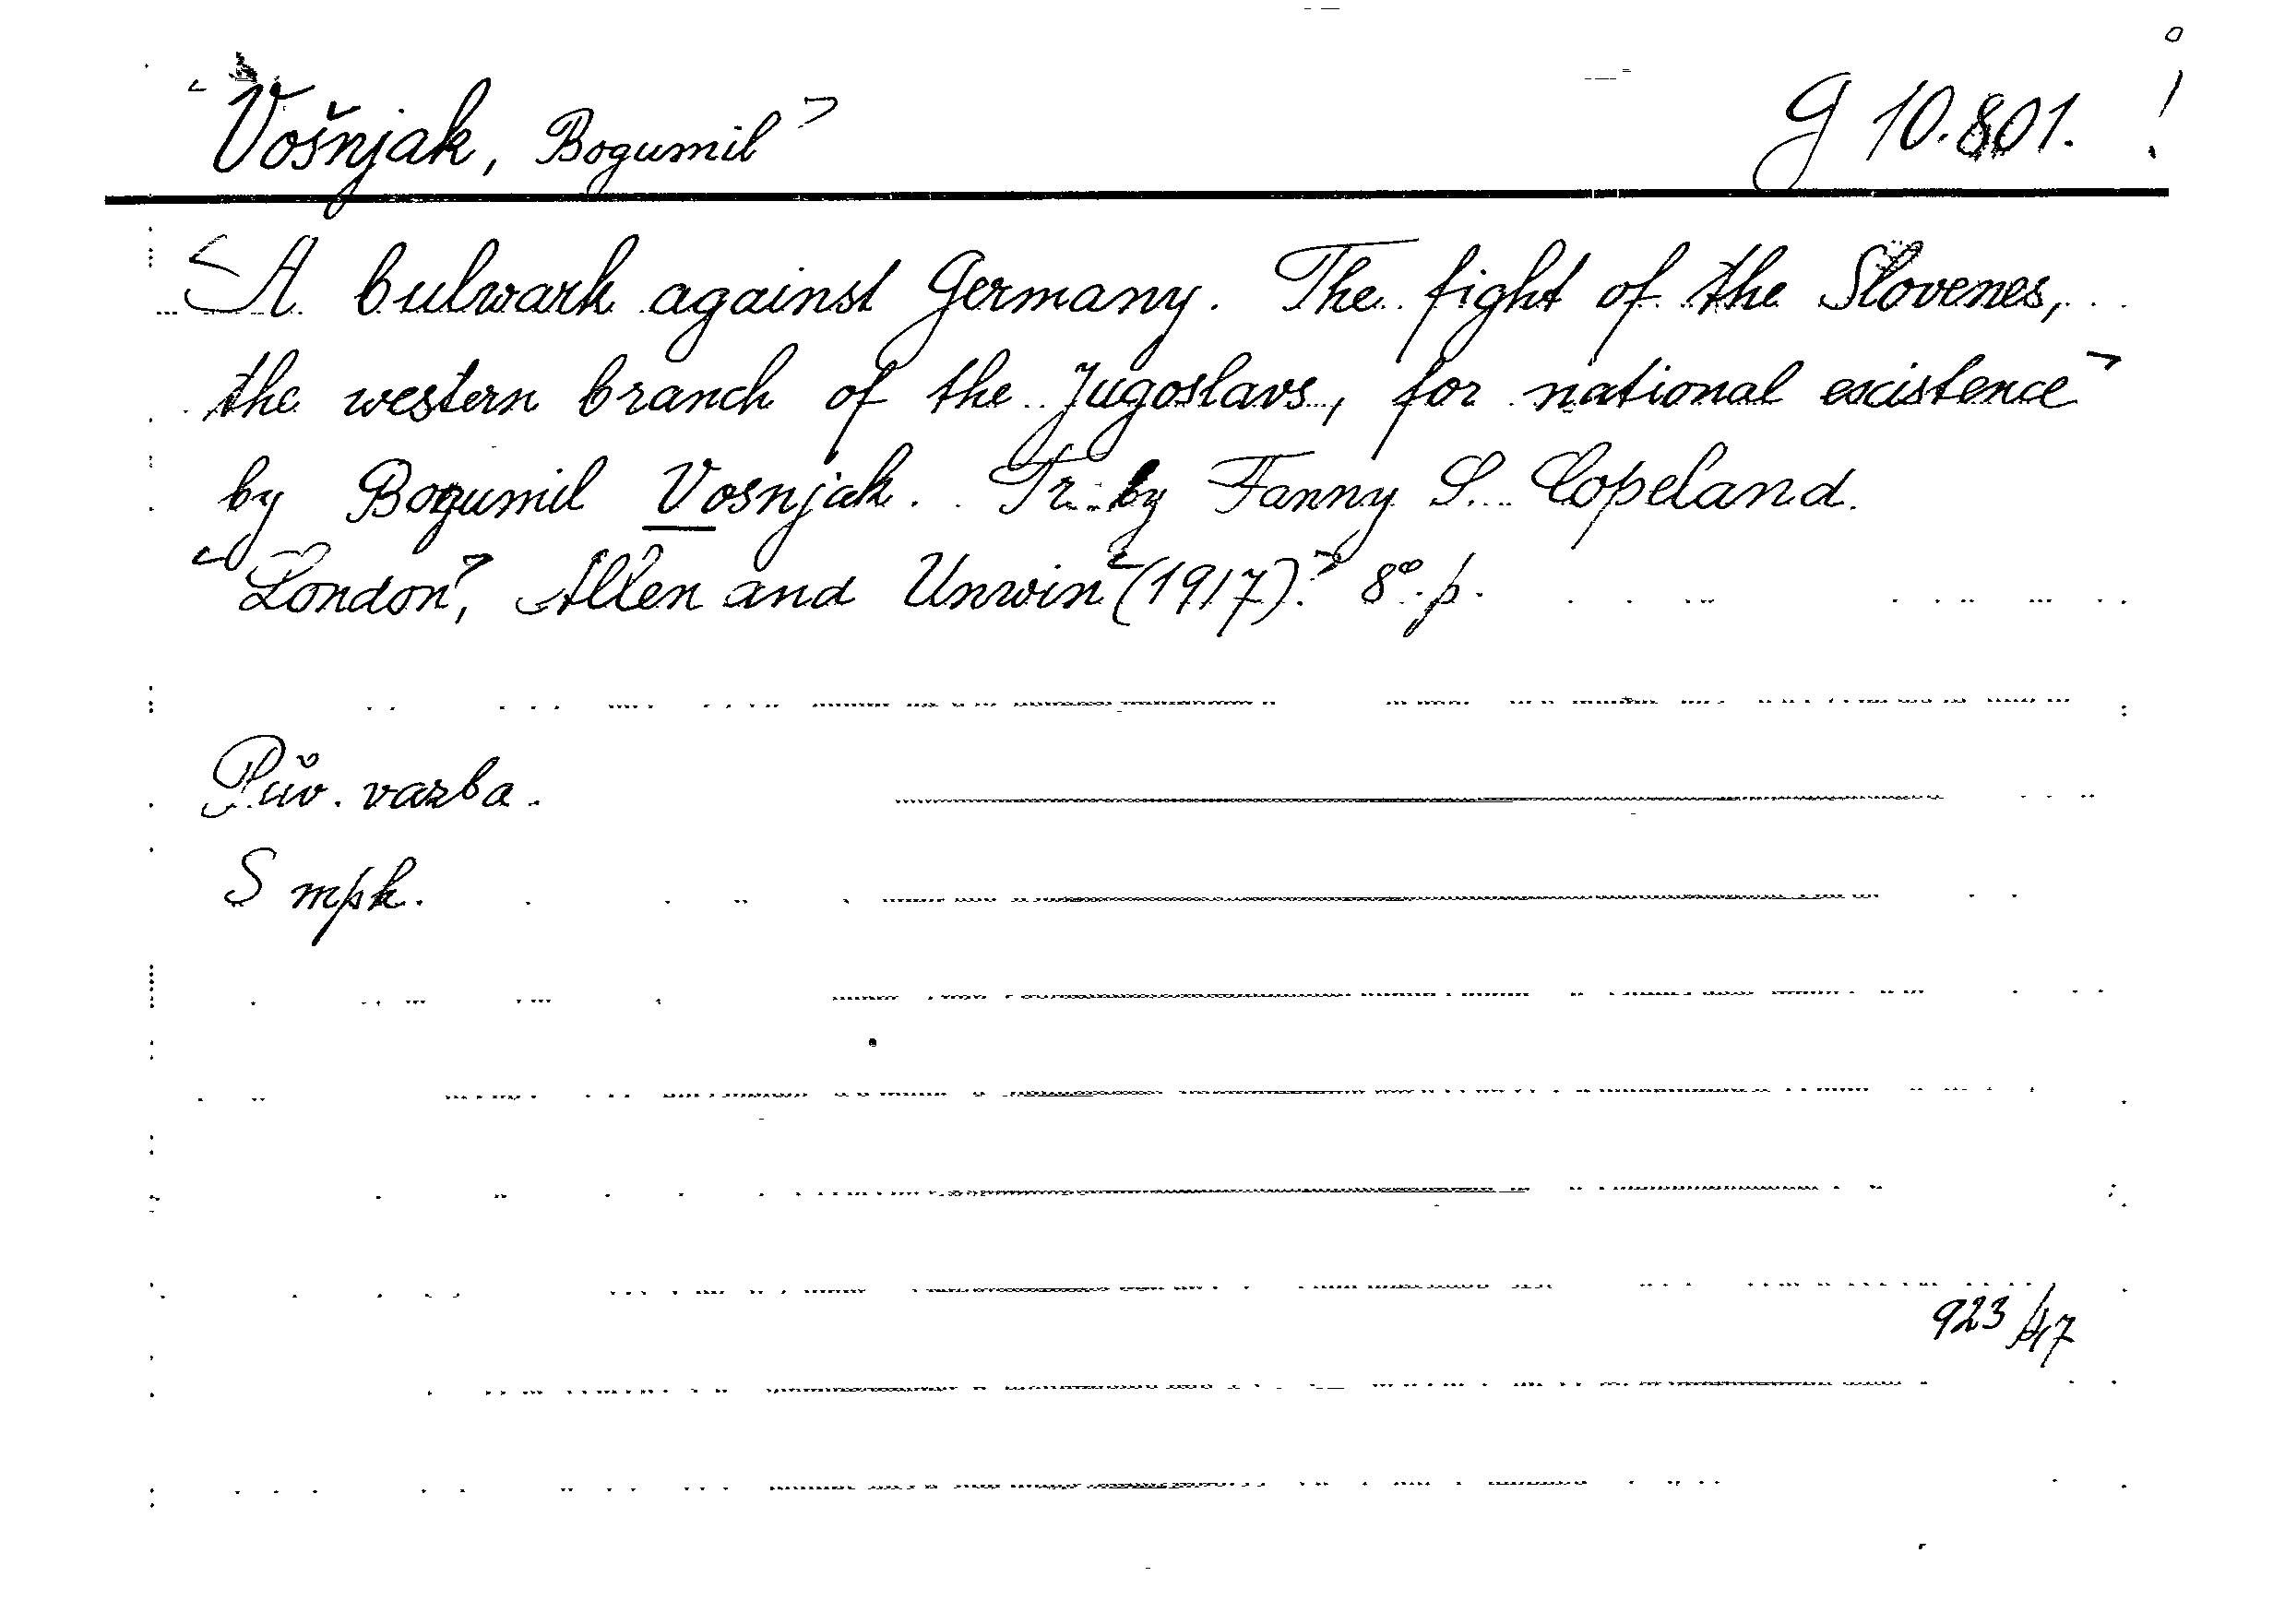 Vošnjak, Bogumil G 10.801. !
A bulwark against Germany. The fight of the Slovenes,
the western branch of the Jugoslavs, for national existence
by Bogumil Vosnjak. Tr. by Fanny S. Copeland.
London, Allen and Unwin (1917). 8°. p.
Pův. vazba.
S mpk.
923/47